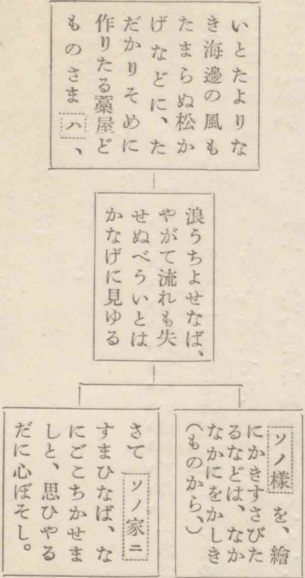 いとたよりな
き海邊の風も
たまらぬ松か
げなどに、た
だかりそめに
作りたる藁屋ど
ものさまハ、
浪うちよせなば、
やがて流れも失
せぬべういとは
かなげに見ゆる
ソノ樣を、繪
にかきすさびた
るなどは、なか
なかにをかしき
(ものから、)
さてソノ家ニ
すまひなば、な
にごこちかせま
しと、思ひやる
だに心ぼそし。